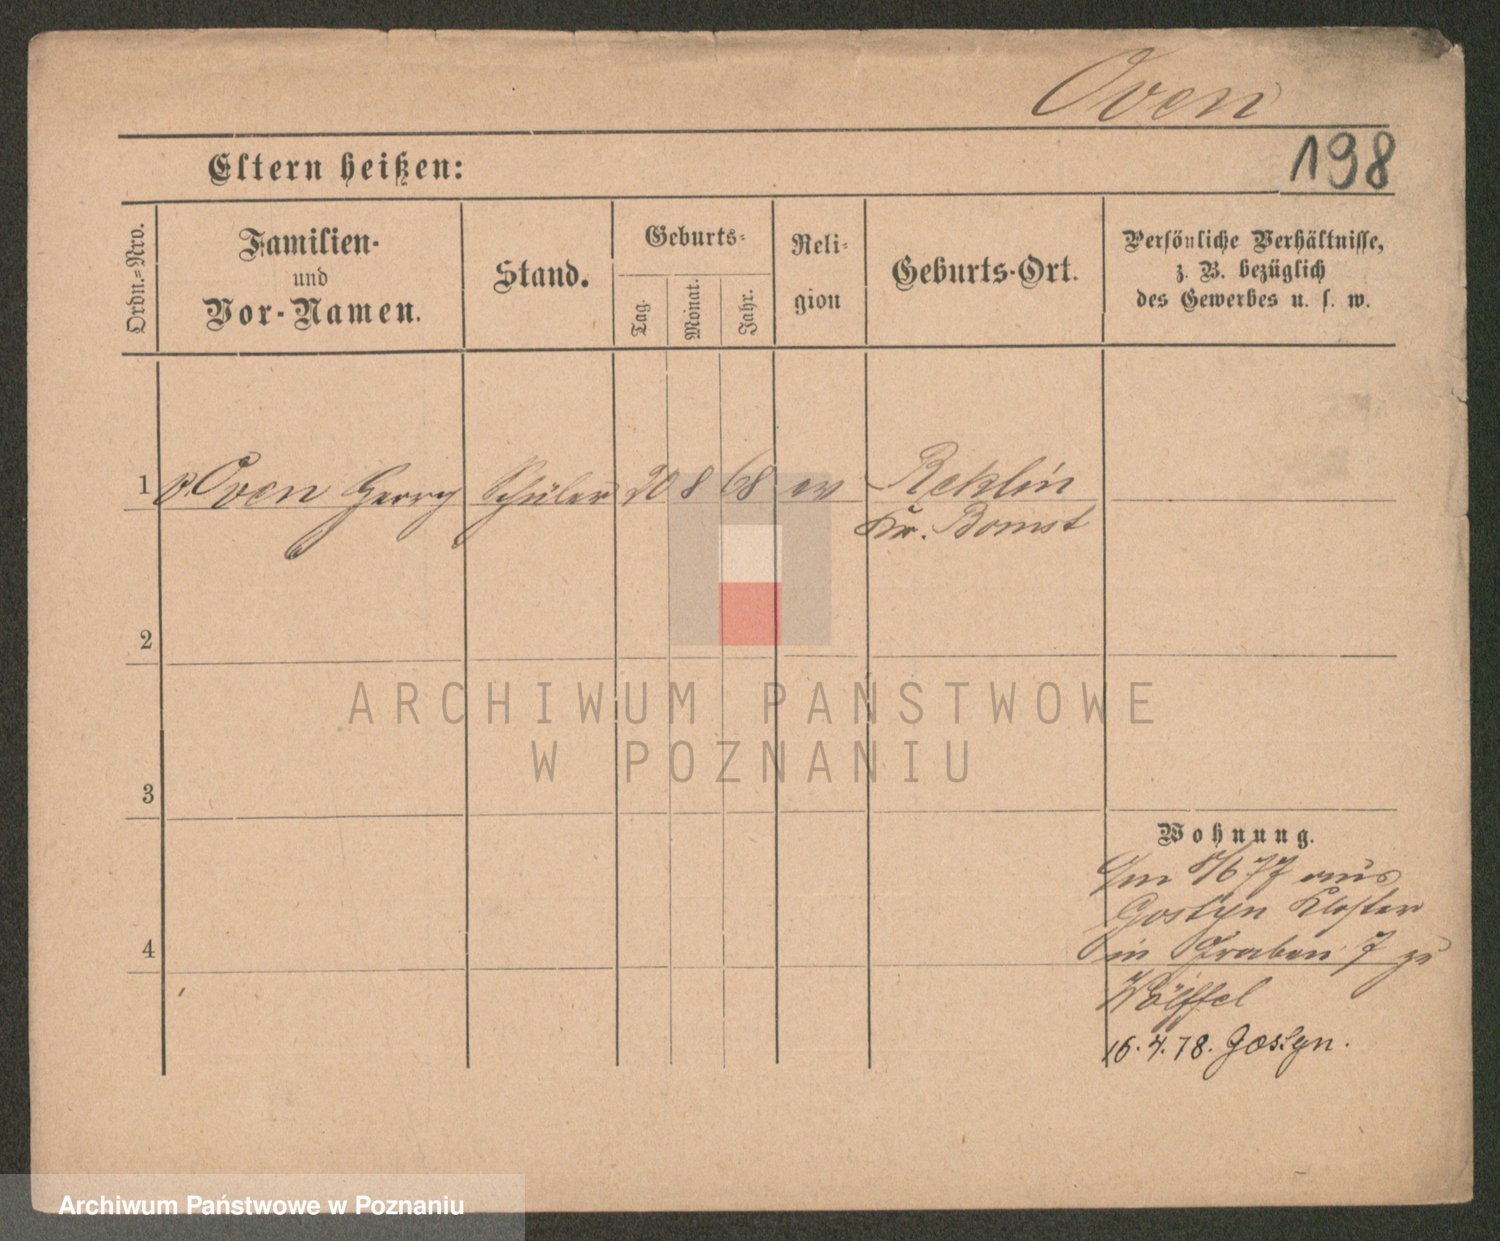 Oven
198
Eltern heißen:
Ordn.-Nro.
Familien-
und
Vor-Namen.
Stand.
Geburts-
Tag.
Monat.
Jahr.
Reli-
gion
Geburts-Ort.
Persönliche Verhältnisse,
z. B. bezüglich
des Gewerbes u. s. w.
1 v. Oven Georg Schüler 20 8 68 ev Reklin
Kr. Bomst
2
3
4
Wohnung.
Am 8/6 77 aus
Gostyn Kloster
in Graben 7 zu
Wölffel
16. 4. 78. Gostyn.
ARCHIWUM PAŃSTWOWE
W POZNANIU
Archiwum Państwowe w Poznaniu